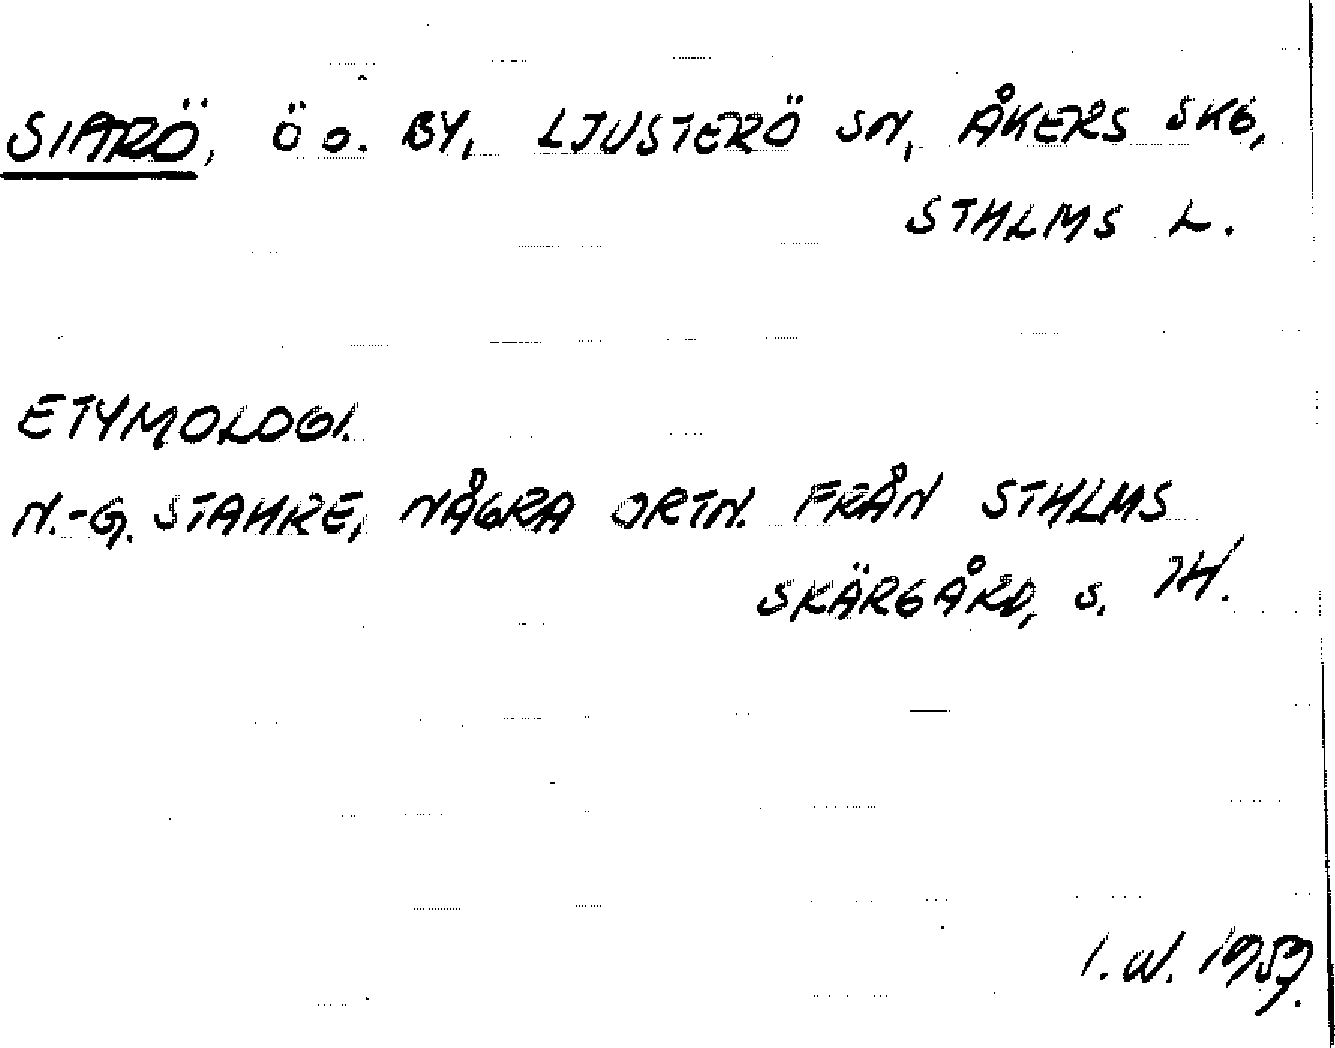 SIARÖ, Ö o. BY, LJUSTERÖ SN, ÅKERS SKG,
STHLMS L.
ETYMOLOGI.
N.-G. STAHRE, NÅGRA ORTN. FRÅN STHLMS
SKÄRGÅRD, S. 74.
I. W. 1959.